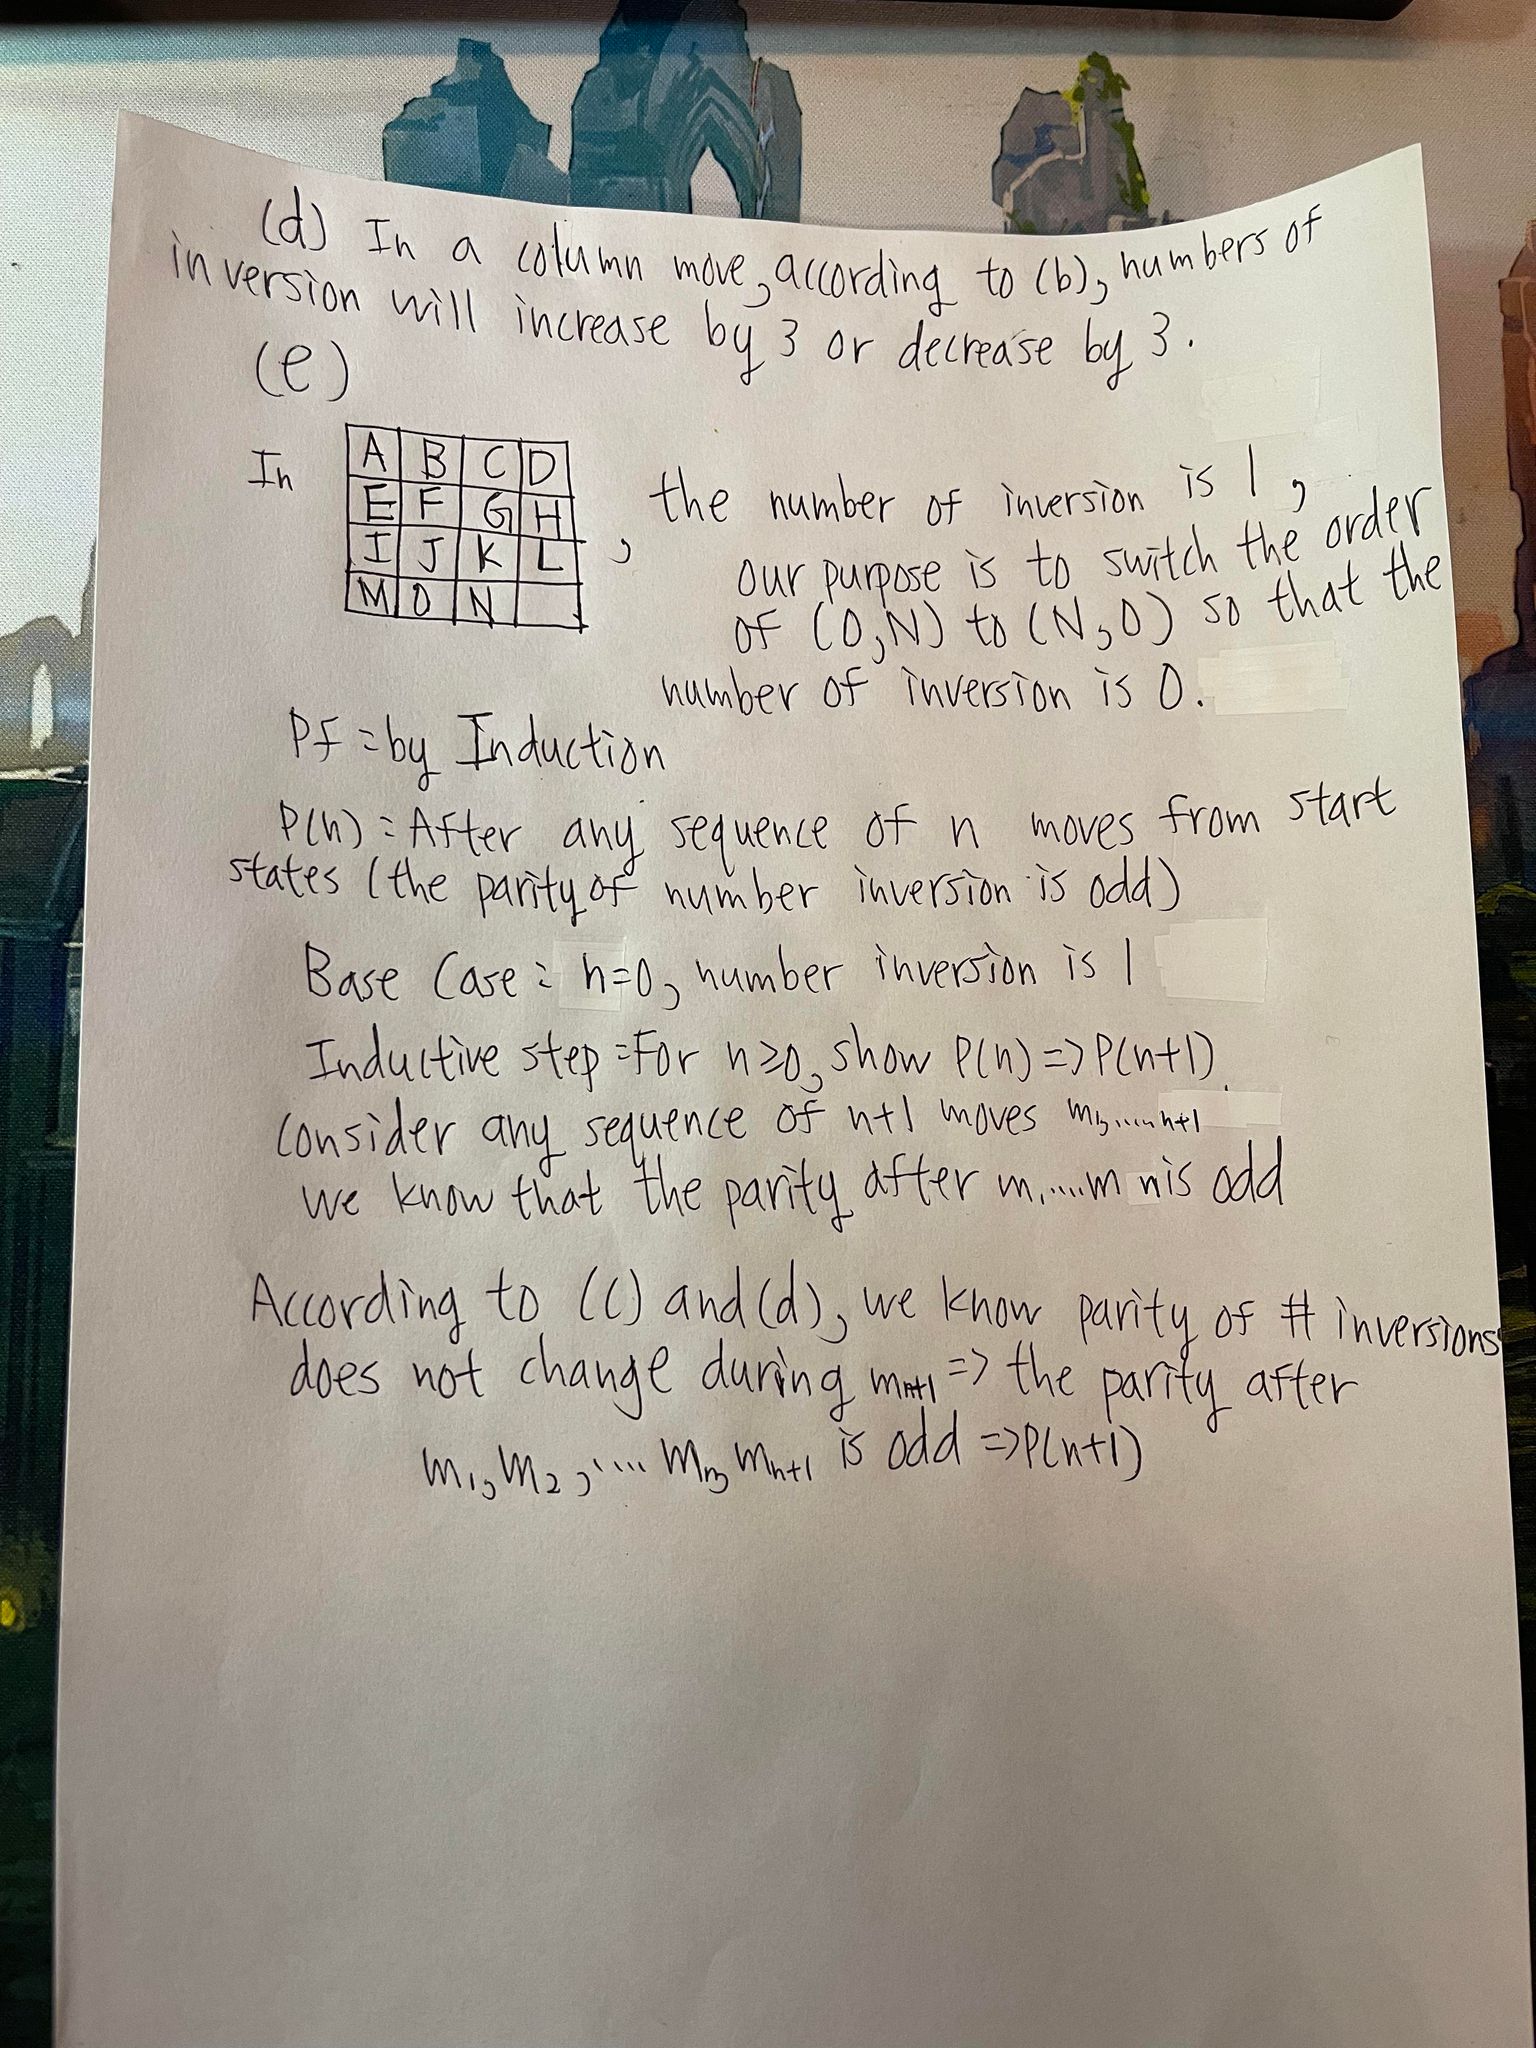 (d) In a column move, according to (b), numbers of
inversion will increase by 3 or decrease by 3.
(e)
In
A B C D
E F G H
I J K L
M O N
, the number of inversion is 1,
our purpose is to switch the order
of (O,N) to (N,O) so that the
number of inversion is 0.
Pf: by Induction
P(n): After any sequence of n moves from start
states (the parity of number inversion is odd)
Base Case: n=0, number inversion is 1
Inductive step: For n≥0, show P(n)=>P(n+1).
Consider any sequence of n+1 moves m1,.....n+1
we know that the parity after m1.....m n is odd
According to (c) and (d), we know parity of # inversions
does not change during mn+1 => the parity after
m1, m2, .... mn, mn+1 is odd =>P(n+1)